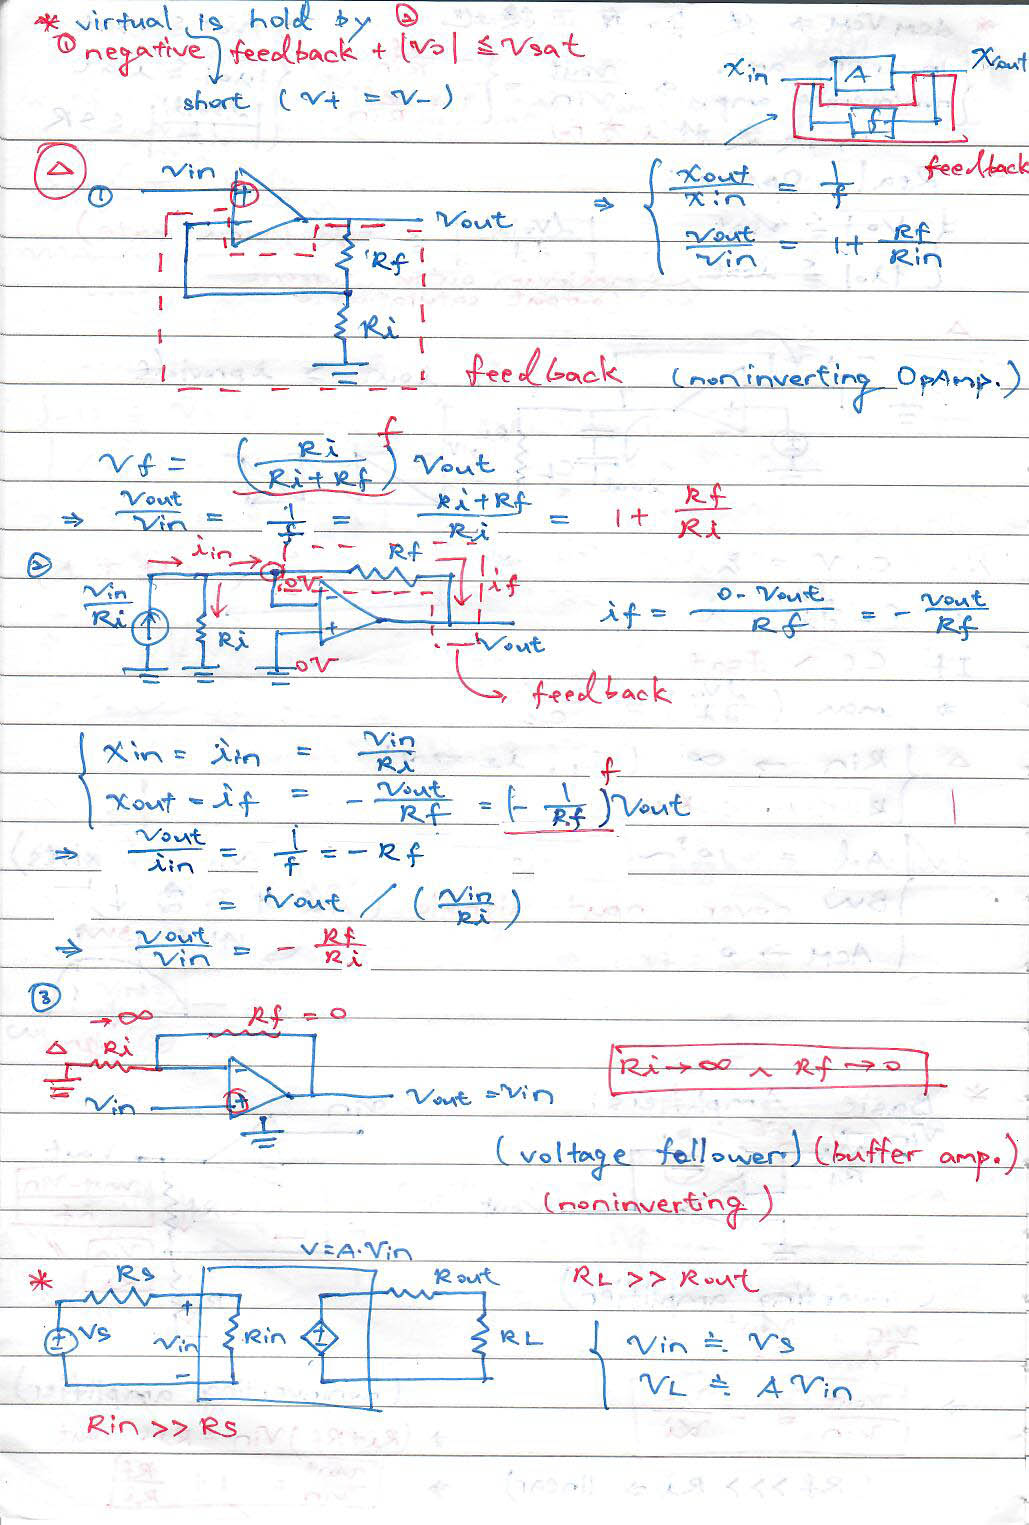 * virtual is hold by ②
① negative feedback + |Vo| ≤ Vsat
short (V+ = V-)
Xin A Xout
f
feedback
△ ① Vin + - Vout
Rf
Ri
⇒ { Xout/Xin = 1/f
Vout/Vin = 1 + Rf/Rin
feedback (noninverting OpAmp.)
Vf = (Ri/(Ri+Rf)) Vout f
⇒ Vout/Vin = 1/f = (Ri+Rf)/Ri = 1 + Rf/Ri
② iin Rf
Vin/Ri Ri 0V - + if Vout
0V
if = (0-Vout)/Rf = - Vout/Rf
feedback
{ Xin = iin = Vin/Ri
Xout = if = - Vout/Rf = (- 1/Rf) Vout f
⇒ Vout/iin = 1/f = - Rf
= Vout / (Vin/Ri)
⇒ Vout/Vin = - Rf/Ri
③
→ ∞ Rf = 0
△ Ri
-
Vin + Vout = Vin
Ri → ∞ ∧ Rf → 0
(voltage follower) (buffer amp.)
(noninverting)
V = A·Vin
* Rs Rout RL >> Rout
Vs + Vin - Rin RL
{ Vin ≒ Vs
VL ≒ A Vin
Rin >> Rs